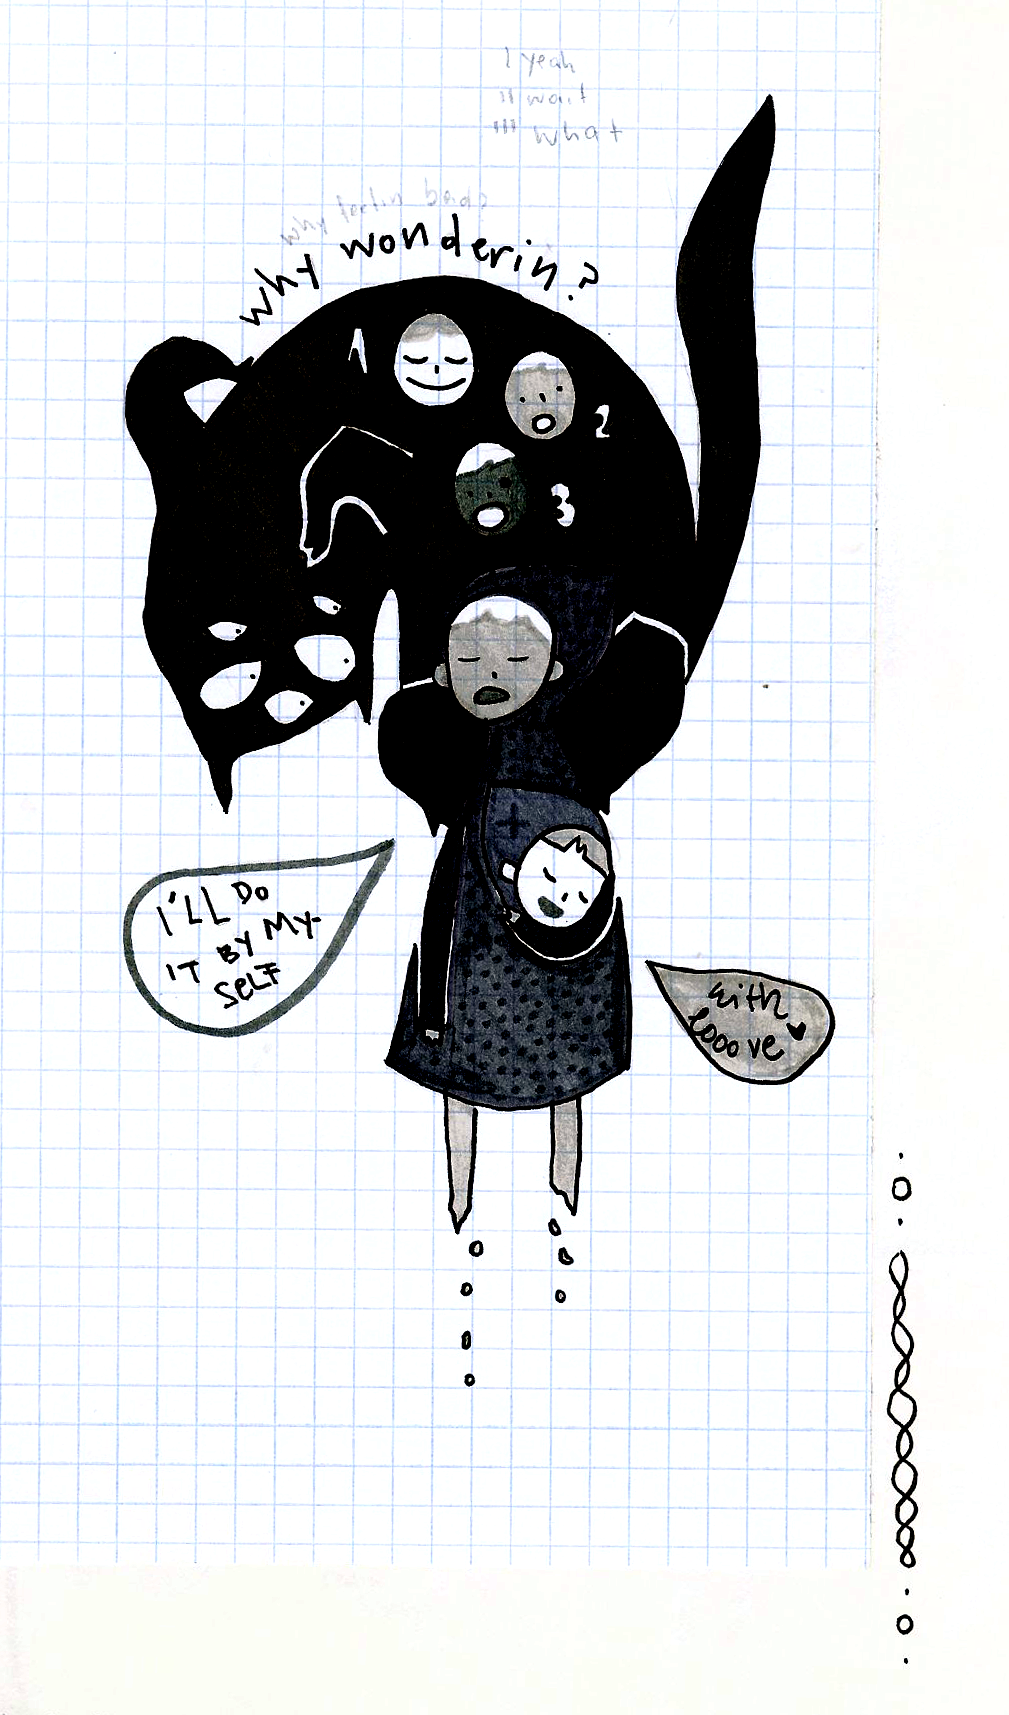 1 yeah
11 wait
111 what
why feelin bad?
why wonderin?
1
2
3
I'LL DO
IT BY MY-
SELF
with
looove